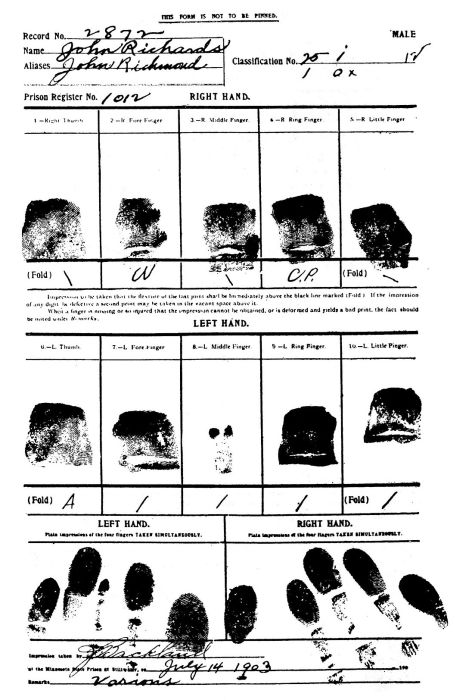 THIS FORM IS NOT TO BE PINNED.
Record No. 2872
MALE
Name John Richards
Aliases John Richmond
Classification No. 25 i
1 0 x
Prison Register No. 1012
RIGHT HAND.
1.—Right Thumb. 2.—R. Fore Finger 3.—R. Middle Finger. 4.—R. Ring Finger. 5.—R. Little Finger
(Fold) \ W \ C.P. (Fold) \
Impression to be taken that the flexure of the last joint shall be immediately above the black line marked (Fold). If the impression
of any digit be defective a second print may be taken in the vacant space above it.
When a finger is missing or so injured that the impression cannot be obtained, or is deformed and yields a bad print, the fact should
be noted under Remarks.
LEFT HAND.
6.—L. Thumb. 7.—L. Fore Finger 8.—L. Middle Finger. 9.—L. Ring Finger. 10.—L. Little Finger.
(Fold) A / / / (Fold) /
LEFT HAND. RIGHT HAND.
Plain impressions of the four fingers TAKEN SIMULTANEOUSLY. Plain impressions of the four fingers TAKEN SIMULTANEOUSLY.
Impression taken by
at the Minnesota State Prison at Stillwater, on July 14 1903 190
Remarks Various